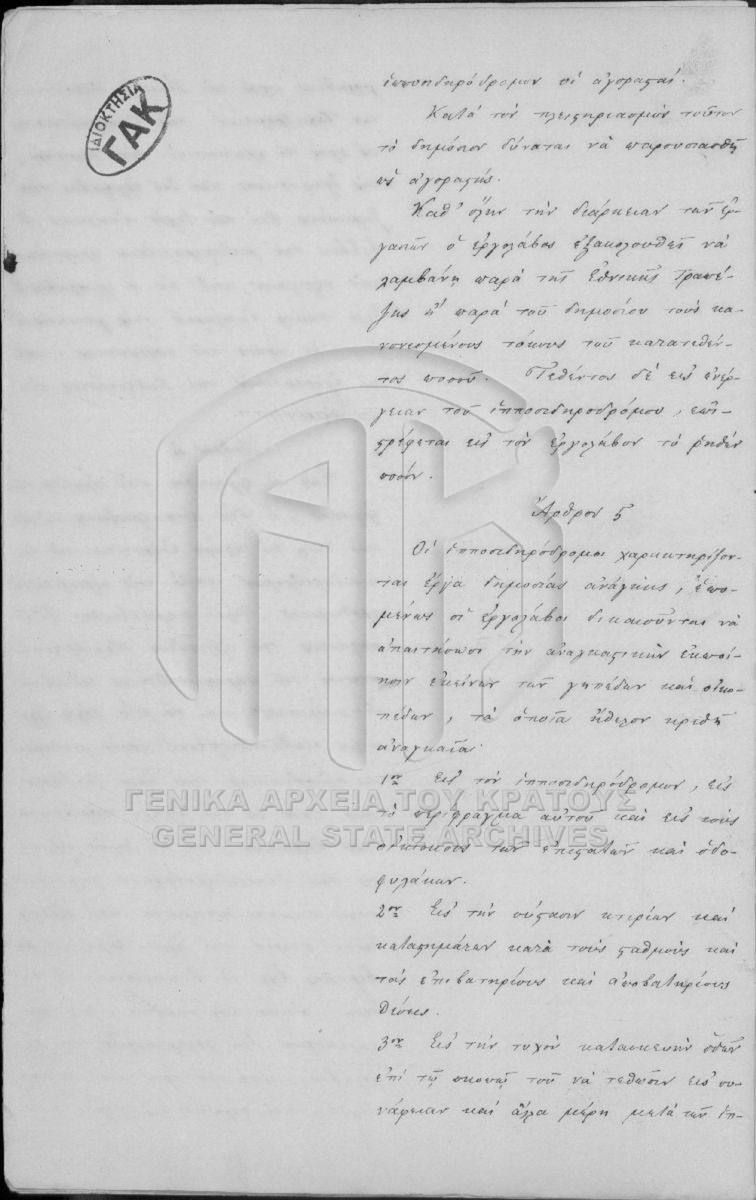 ΙΔΙΟΚΤΗΣΙΑ
ΓΑΚ
ἱπποσιδηρόδρομον οἱ ἀγορασταί.
Κατὰ τὸν πλειστηριασμὸν τοῦτον
τὸ δημόσιον δύναται νὰ παρουσιασθῇ
ὡς ἀγοραστής.
Καθ' ὅλην τὴν διάρκειαν τῶν ἐρ-
γασιῶν ὁ ἐργολάβος ἐξακολουθεῖ νὰ
λαμβάνῃ παρὰ τῆς Ἐθνικῆς Τραπέ-
ζης ἢ παρὰ τοῦ δημοσίου τοὺς κα-
νονισμένους τόκους τοῦ κατατεθέν-
τος ποσοῦ. Τεθέντος δὲ εἰς ἐνέρ-
γειαν τοῦ ἱπποσιδηροδρόμου, ἐπι-
στρέφεται εἰς τὸν ἐργολάβον τὸ ῥηθὲν
ποσόν.
Ἄρθρον 5
Οἱ ἱπποσιδηρόδρομοι χαρακτηρίζον-
ται ἔργα δημοσίας ἀνάγκης, ἑπο-
μένως οἱ ἐργολάβοι δικαιοῦνται νὰ
ἀπαιτήσωσι τὴν ἀναγκαστικὴν ἐκποί-
ησιν ἐκείνων τῶν γηπέδων καὶ οἰκο-
πέδων, τὰ ὁποῖα ἤθελον κριθῆ
ἀναγκαῖα.
1ον Εἰς τὸν ἱπποσιδηρόδρομον, εἰς
τὸ περίφραγμα αὐτοῦ καὶ εἰς τοὺς
οἰκίσκους τῶν ἐπιστατῶν καὶ ὁδο-
φυλάκων.
2ον Εἰς τὴν σύστασιν κτιρίων καὶ
καταστημάτων κατὰ τοὺς σταθμοὺς καὶ
τὰς ἐπιβατηρίους καὶ ἀποβατηρίους
θέσεις.
3ον Εἰς τὴν τυχὸν κατασκευὴν ὁδῶν
ἐπὶ τῷ σκοπῷ τοῦ νὰ τεθῶσιν εἰς συ-
νάφειαν καὶ ἄλλα μέρη μετὰ τῶν ἱπ-
ΓΕΝΙΚΑ ΑΡΧΕΙΑ ΤΟΥ ΚΡΑΤΟΥΣ
GENERAL STATE ARCHIVES